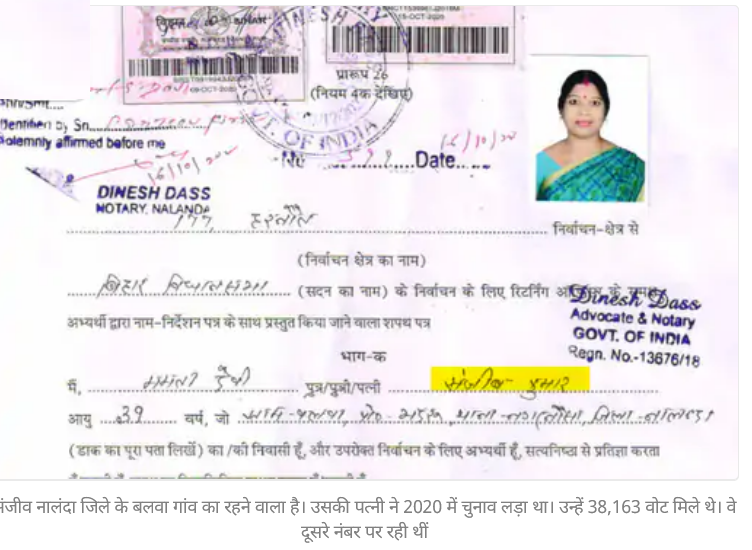 15-OCT-2020
09-OCT-2020
प्रारूप 26
(नियम 4क देखिए)
Identified by Sri
Solemnly affirmed before me
GOVT. OF INDIA
No. Date
16/10/20
16/10/20
DINESH DASS
NOTARY, NALANDA
177, हरनौत निर्वाचन-क्षेत्र से
(निर्वाचन क्षेत्र का नाम)
बिहार विधानसभा (सदन का नाम) के निर्वाचन के लिए रिटर्निंग के
Dinesh Dass
Advocate & Notary
GOVT. OF INDIA
Regn. No.-13676/18
अभ्यर्थी द्वारा नाम-निर्देशन पत्र के साथ प्रस्तुत किया जाने वाला शपथ पत्र
भाग-क
मैं, ममता देवी पुत्र/पुत्री/पत्नी संजीव कुमार
आयु 39 वर्ष, जो ग्राम-बलवा, थाना-नगरनौसा, जिला-नालन्दा
(डाक का पूरा पता लिखें) का/की निवासी हूँ, और उपरोक्त निर्वाचन के लिए अभ्यर्थी हूँ, सत्यनिष्ठा से प्रतिज्ञा करता
संजीव नालंदा जिले के बलवा गांव का रहने वाला है। उसकी पत्नी ने 2020 में चुनाव लड़ा था। उन्हें 38,163 वोट मिले थे। वे
दूसरे नंबर पर रही थीं